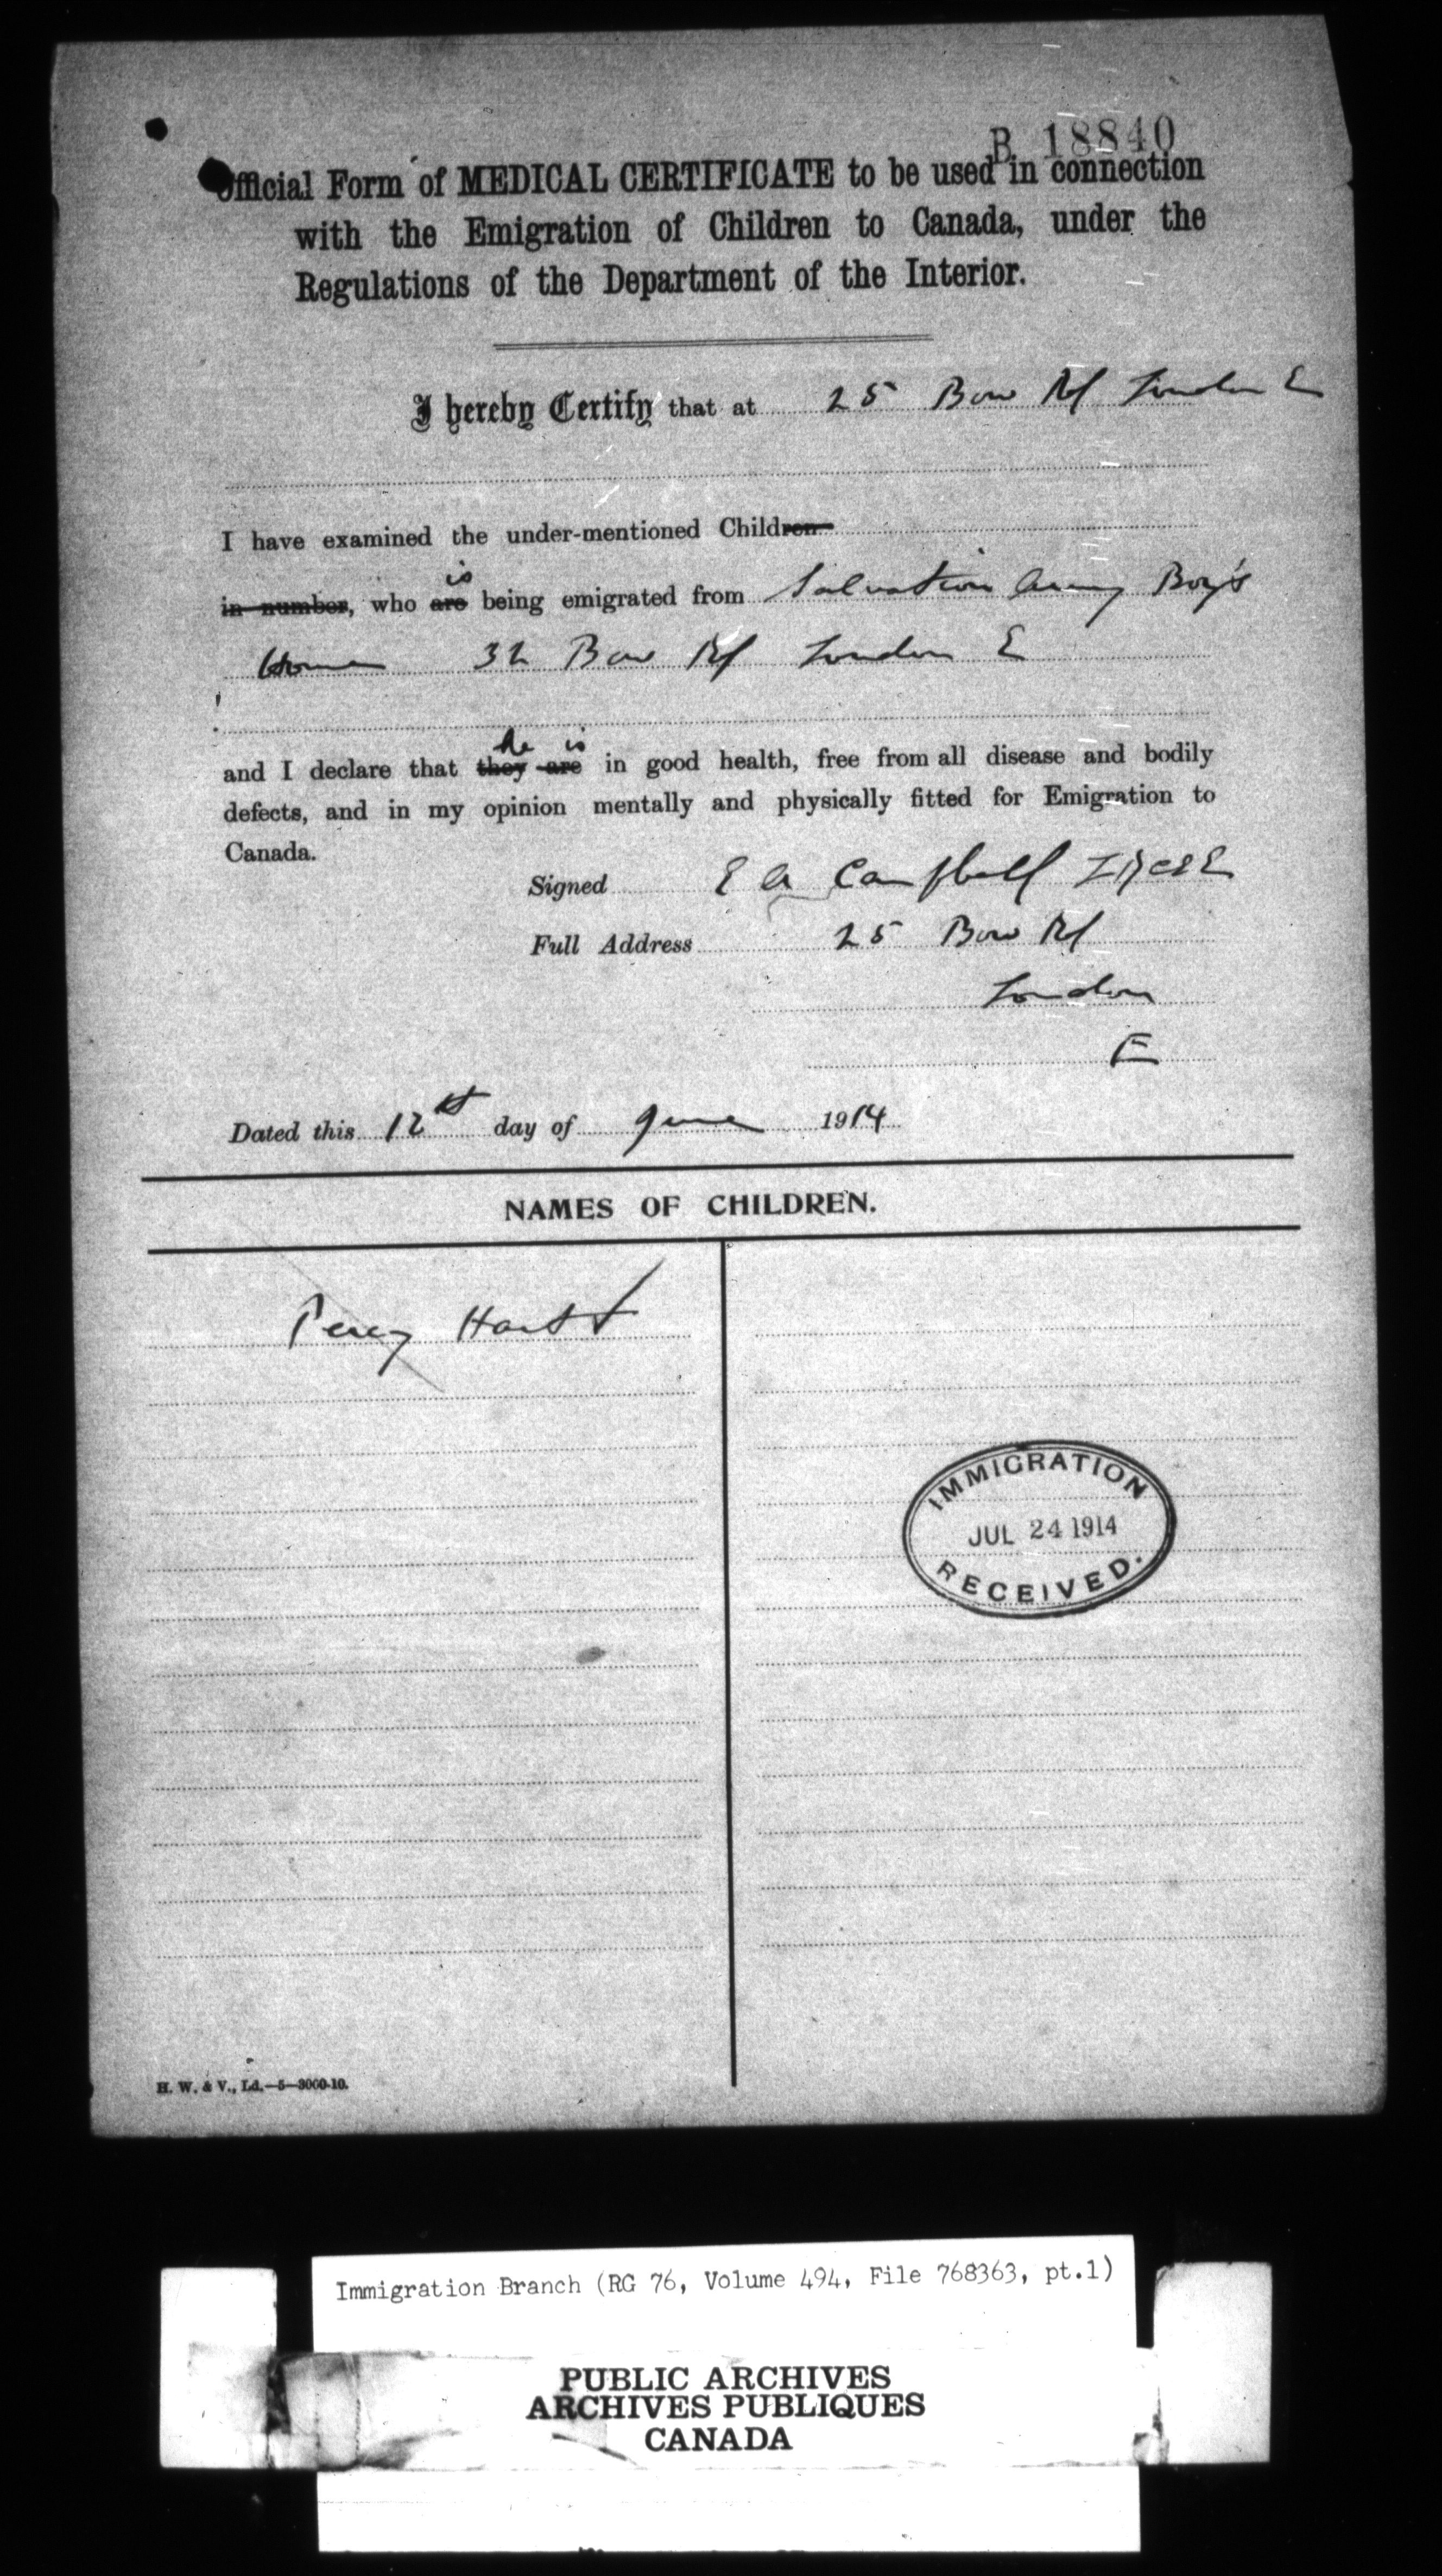 B 18840
Official Form of MEDICAL CERTIFICATE to be used in connection
with the Emigration of Children to Canada, under the
Regulations of the Department of the Interior.
I hereby Certify that at 25 Bow Rd London E
I have examined the under-mentioned Children
is
in number, who are being emigrated from Salvation Army Boy's
Home 32 Bow Rd London E
he is
and I declare that they are in good health, free from all disease and bodily
defects, and in my opinion mentally and physically fitted for Emigration to
Canada.
Signed E A Campbell
Full Address 25 Bow Rd
London
E
Dated this 12th day of June 1914
NAMES OF CHILDREN.
Percy Hart
IMMIGRATION
JUL 24 1914
RECEIVED.
H. W. & V., Ld.—5—3000-10.
Immigration Branch (RG 76, Volume 494, File 768363, pt.1)
PUBLIC ARCHIVES
ARCHIVES PUBLIQUES
CANADA